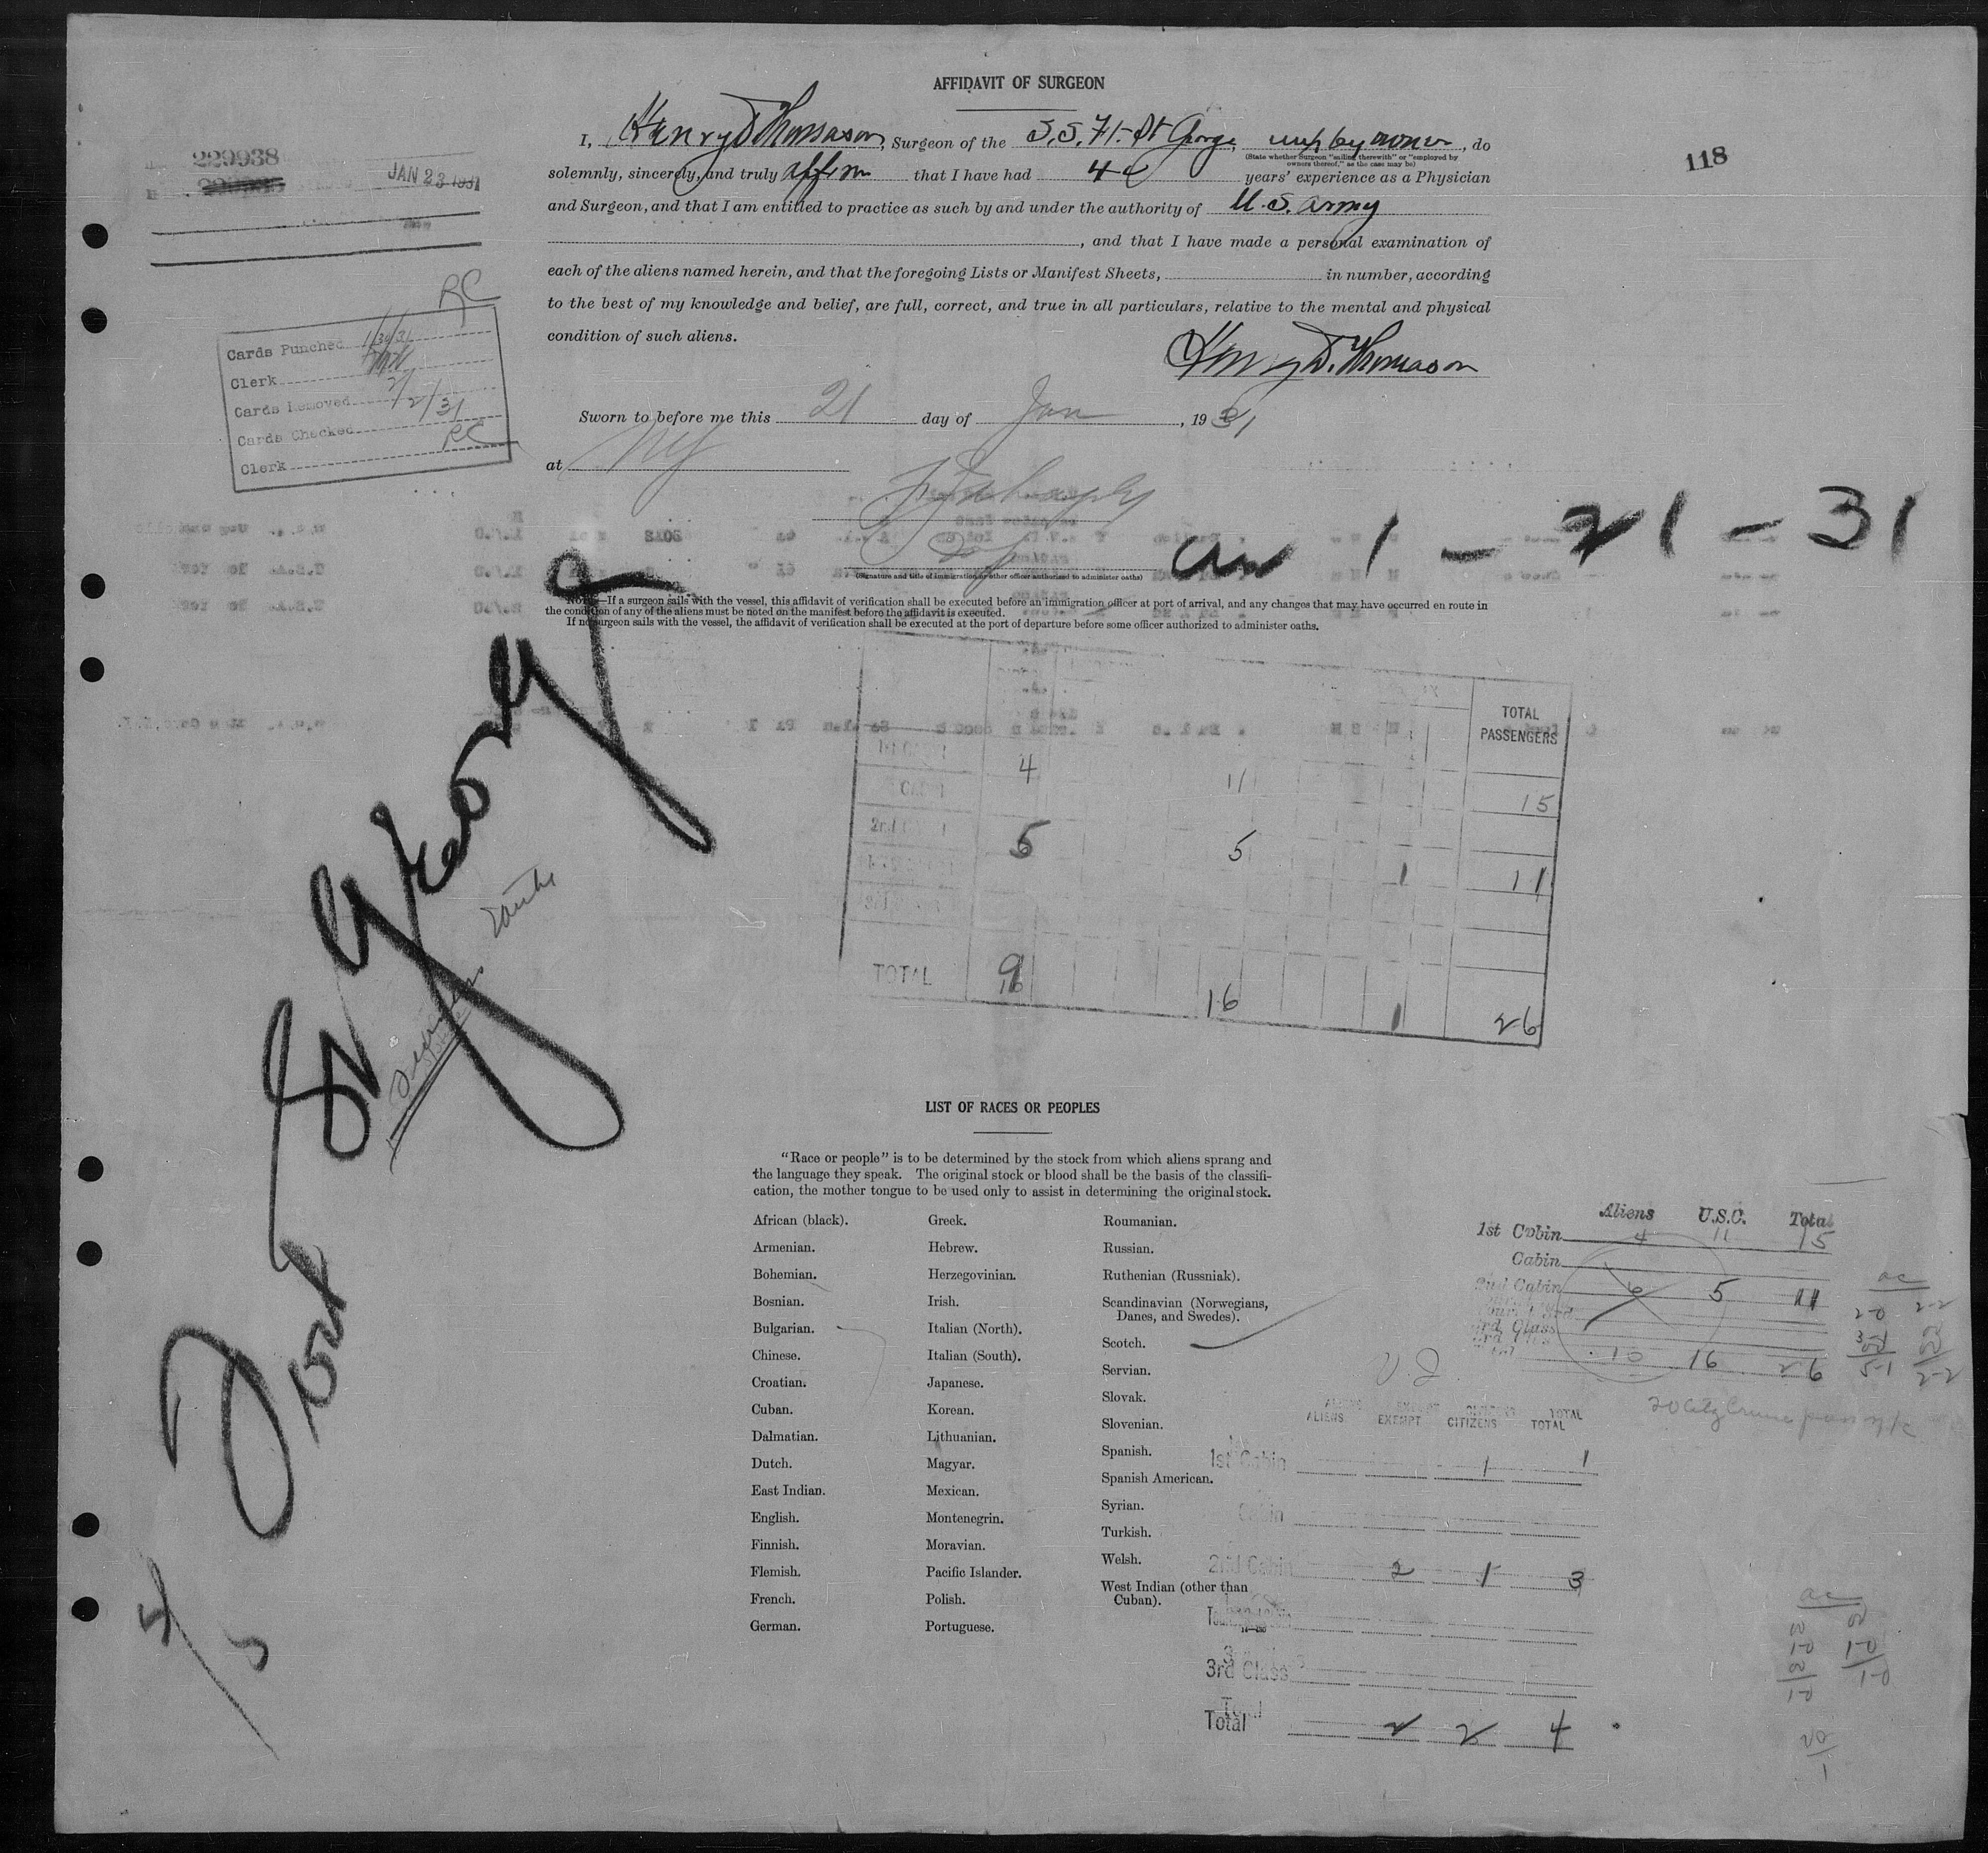 AFFIDAVIT OF SURGEON
I, Henry D Thomason, Surgeon of the S.S. Ft. St George, emp by owner, do
(State whether Surgeon "sailing therewith" or "employed by
owners thereof," as the case may be)
solemnly, sincerely, and truly affirm that I have had years' experience as a Physician
and Surgeon, and that I am entitled to practice as such by and under the authority of U.S. Army
, and that I have made a personal examination of
each of the aliens named herein, and that the foregoing Lists or Manifest Sheets, in number, according
to the best of my knowledge and belief, are full, correct, and true in all particulars, relative to the mental and physical
condition of such aliens.
Henry D. Thomason
Sworn to before me this 21 day of Jan, 1931
at NY
(Signature and title of immigration or other officer authorized to administer oaths)
NOTE.—If a surgeon sails with the vessel, this affidavit of verification shall be executed before an immigration officer at port of arrival, and any changes that may have occurred en route in
the condition of any of the aliens must be noted on the manifest before the affidavit is executed.
If no surgeon sails with the vessel, the affidavit of verification shall be executed at the port of departure before some officer authorized to administer oaths.
229938
JAN 23 1931
118
RC
Cards Punched 1/30/31
Clerk
Cards Removed 2/2/31
Cards Checked
Clerk RC
1 - 21 - 31
Fort St George
TOTAL
PASSENGERS
4 11 15
2nd
5 5 1 11
TOTAL 9 16 1 26
LIST OF RACES OR PEOPLES
"Race or people" is to be determined by the stock from which aliens sprang and
the language they speak. The original stock or blood shall be the basis of the classifi-
cation, the mother tongue to be used only to assist in determining the original stock.
African (black).
Armenian.
Bohemian.
Bosnian.
Bulgarian.
Chinese.
Croatian.
Cuban.
Dalmatian.
Dutch.
East Indian.
English.
Finnish.
Flemish.
French.
German.
Greek.
Hebrew.
Herzegovinian.
Irish.
Italian (North).
Italian (South).
Japanese.
Korean.
Lithuanian.
Magyar.
Mexican.
Montenegrin.
Moravian.
Pacific Islander.
Polish.
Portuguese.
Roumanian.
Russian.
Ruthenian (Russniak).
Scandinavian (Norwegians,
Danes, and Swedes).
Scotch.
Servian.
Slovak.
Slovenian.
Spanish.
Spanish American.
Syrian.
Turkish.
Welsh.
West Indian (other than
Cuban).
Aliens U.S.C. Total
1st Cabin 4 11 15
Cabin
2nd Cabin 6 5 11
3rd Class
Total 10 16 26
ALIENS EXEMPT CITIZENS TOTAL
1st Cabin 1 1
Cabin
2nd Cabin 2 1 3
3rd Class
Total 2 2 4